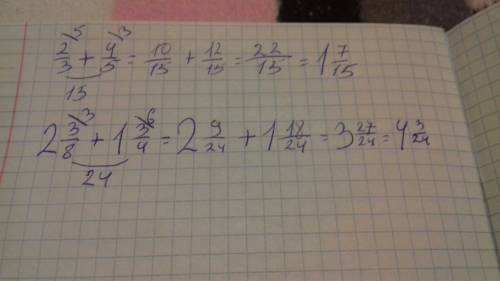 2/3 \5 + 4/5 \3 = 10/15 + 12/15 = 22/15 = 1 7/15
15
2 3/8 \3 + 1 3/4 \6 = 2 9/24 + 1 18/24 = 3 27/24 = 4 3/24
24